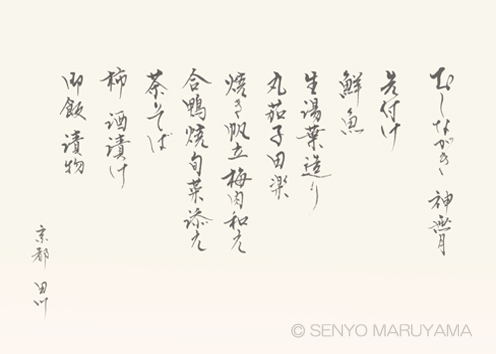 むしながき 神無月
先付け
鮮魚
生湯葉造り
丸茄子田楽
焼き帆立梅肉和え
合鴨焼旬菜添え
茶そば
柿 酒漬け
御飯 漬物
京都 田川
© SENYO MARUYAMA